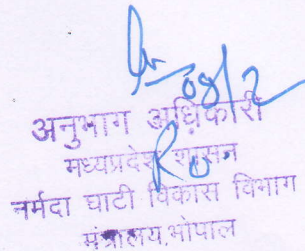 08/2
अनुभाग अधिकारी
मध्यप्रदेश शासन
नर्मदा घाटी विकास विभाग
मंत्रालय, भोपाल